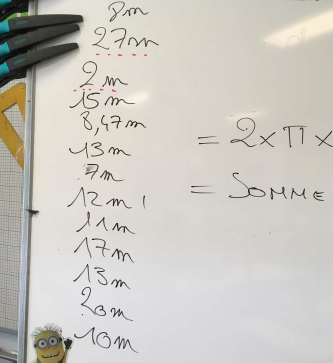 8m
27m
2m
15m
8,47m
13m
7m
12m
11m
17m
13m
20m
10m
= 2 x π x
= SOMME